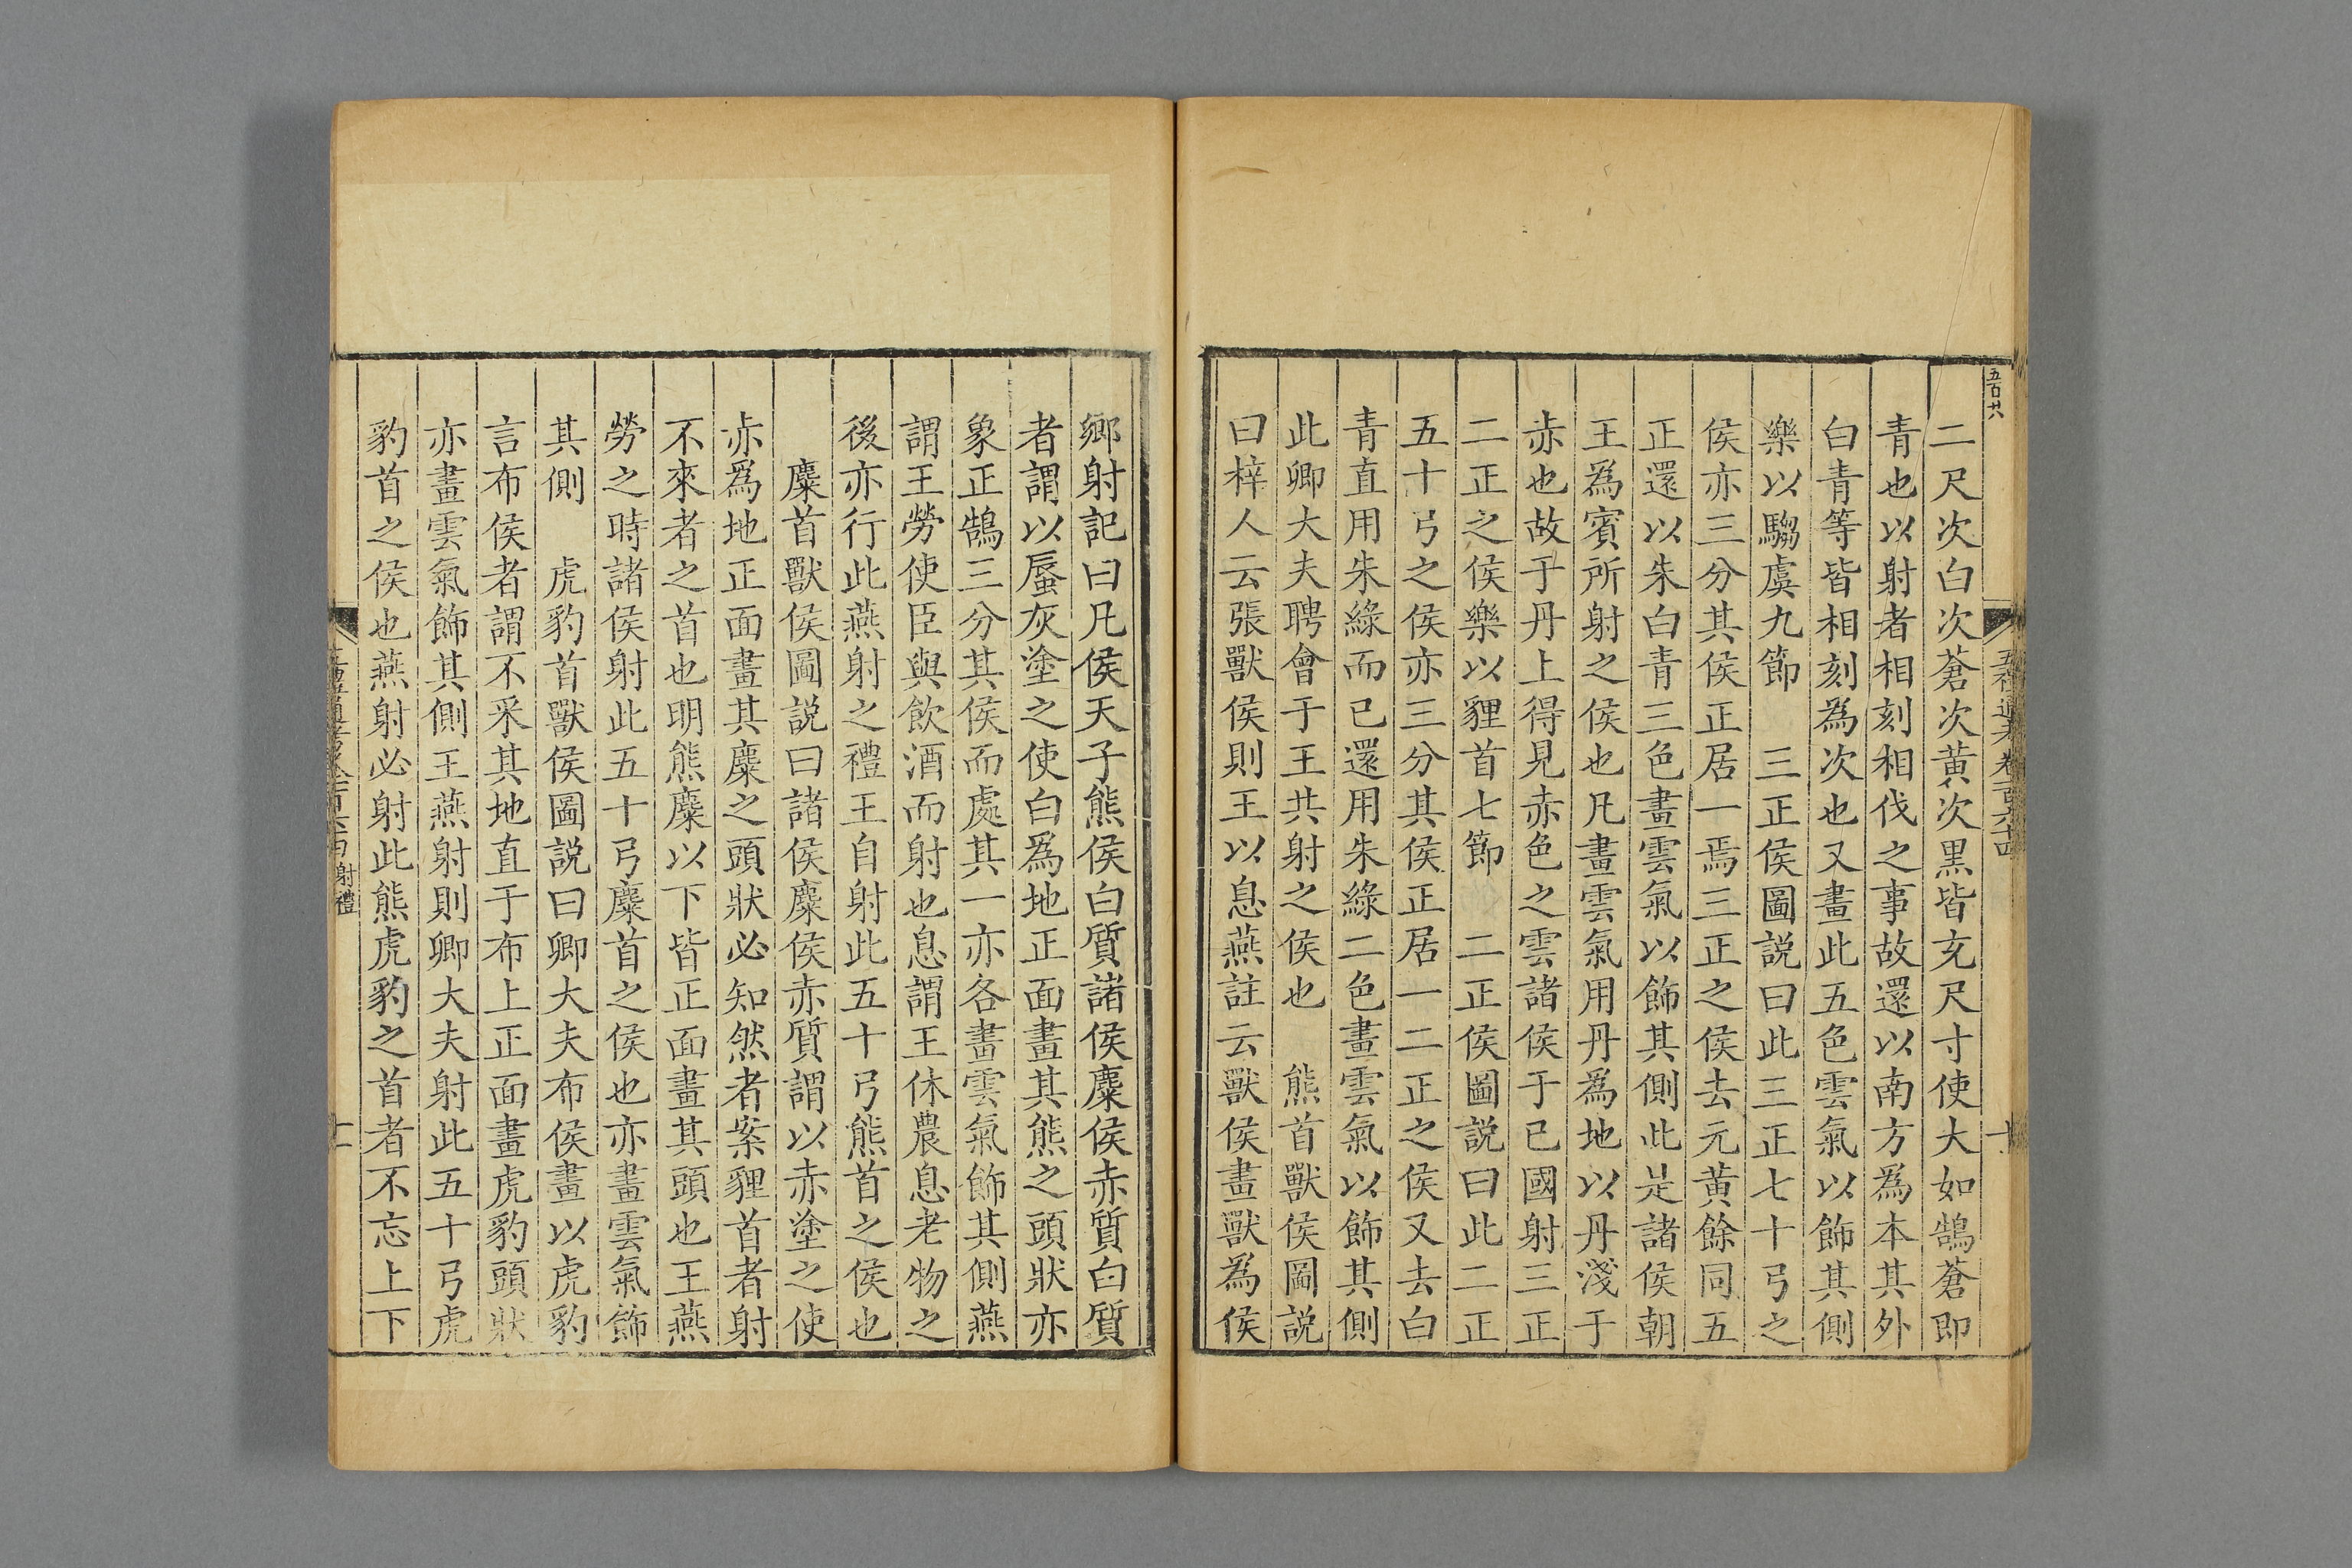 五百廿八
五禮通考卷一百六十四
十
二尺次白次蒼次黄次黒皆充尺寸使大如鵠蒼即
青也以射者相刻相伐之事故還以南方為本其外
白青等皆相刻為次也又畫此五色雲氣以飾其側
樂以騶虞九節　三正侯圖説曰此三正七十弓之
侯亦三分其侯正居一焉三正之侯去元黄餘同五
正還以朱白青三色畫雲氣以飾其側此是諸侯朝
王為賓所射之侯也凡畫雲氣用丹為地以丹淺于
赤也故于丹上得見赤色之雲諸侯于已國射三正
二正之侯樂以貍首七節　二正侯圖説曰此二正
五十弓之侯亦三分其侯正居一二正之侯又去白
青直用朱綠而已還用朱綠二色畫雲氣以飾其側
此卿大夫聘會于王共射之侯也　熊首獸侯圖説
曰梓人云張獸侯則王以息燕註云獸侯畫獸為侯
鄉射記曰凡侯天子熊侯白質諸侯麋侯赤質白質
者謂以蜃灰塗之使白為地正面畫其熊之頭狀亦
象正鵠三分其侯而處其一亦各畫雲氣飾其側燕
謂王勞使臣與飲酒而射也息謂王休農息老物之
後亦行此燕射之禮王自射此五十弓熊首之侯也
麋首獸侯圖説曰諸侯麋侯赤質謂以赤塗之使
赤為地正面畫其麋之頭狀必知然者案貍首者射
不來者之首也明熊麋以下皆正面畫其頭也王燕
勞之時諸侯射此五十弓麋首之侯也亦畫雲氣飾
其側　虎豹首獸侯圖説曰卿大夫布侯畫以虎豹
言布侯者謂不采其地直于布上正面畫虎豹頭狀
亦畫雲氣飾其側王燕射則卿大夫射此五十弓虎
豹首之侯也燕射必射此熊虎豹之首者不忘上下
射禮